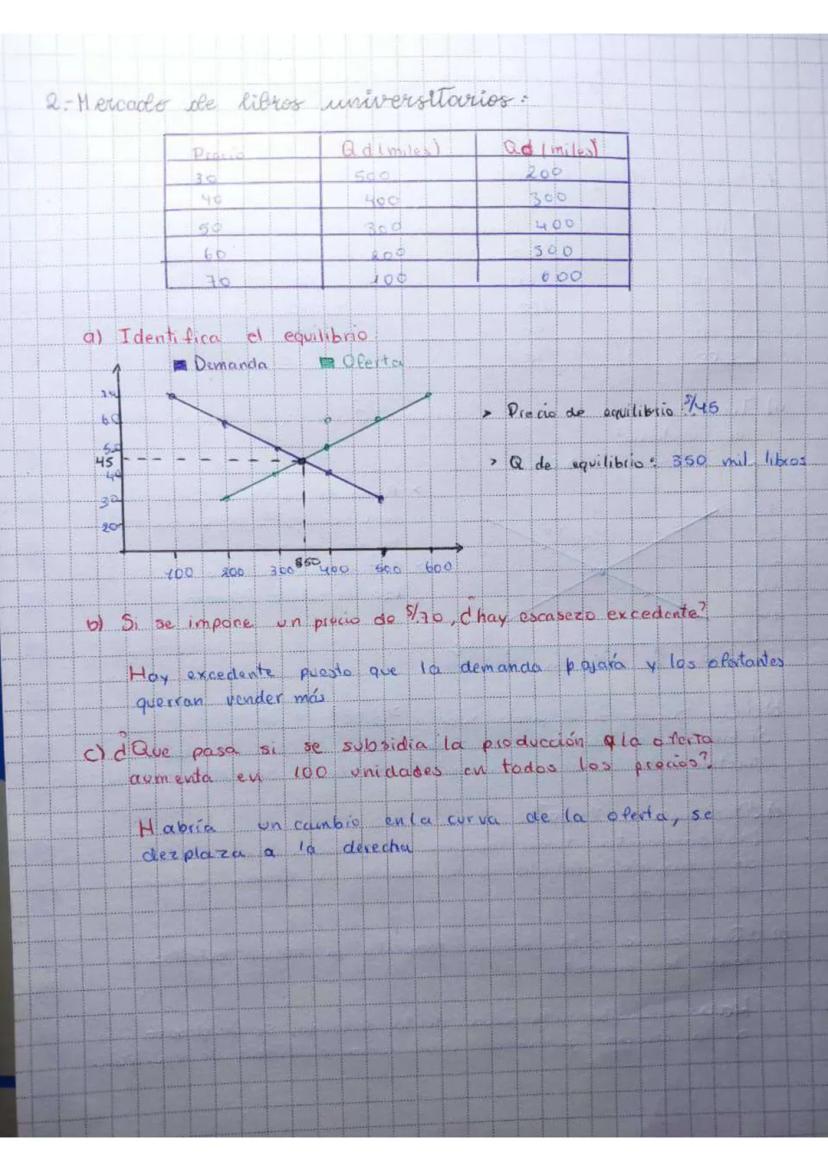 2.- Mercado de libros universitarios:
Precio Qd (miles) Qd (miles)
30 500 200
40 400 300
50 300 400
60 200 500
70 100 600
a) Identifica el equilibrio
Demanda Oferta
70
60
50
45
40
30
20
100 200 300 350 400 500 600
> Precio de equilibrio S/45
> Q de equilibrio: 350 mil libros
b) Si se impone un precio de S/70, ¿hay escasez o excedente?
Hay excedente puesto que la demanda bajará y los ofertantes
querran vender más
c) ¿Que pasa si se subsidia la producción q la oferta
aumenta en 100 unidades en todos los precios?
Habría un cambio en la curva de la oferta, se
dezplaza a la derecha